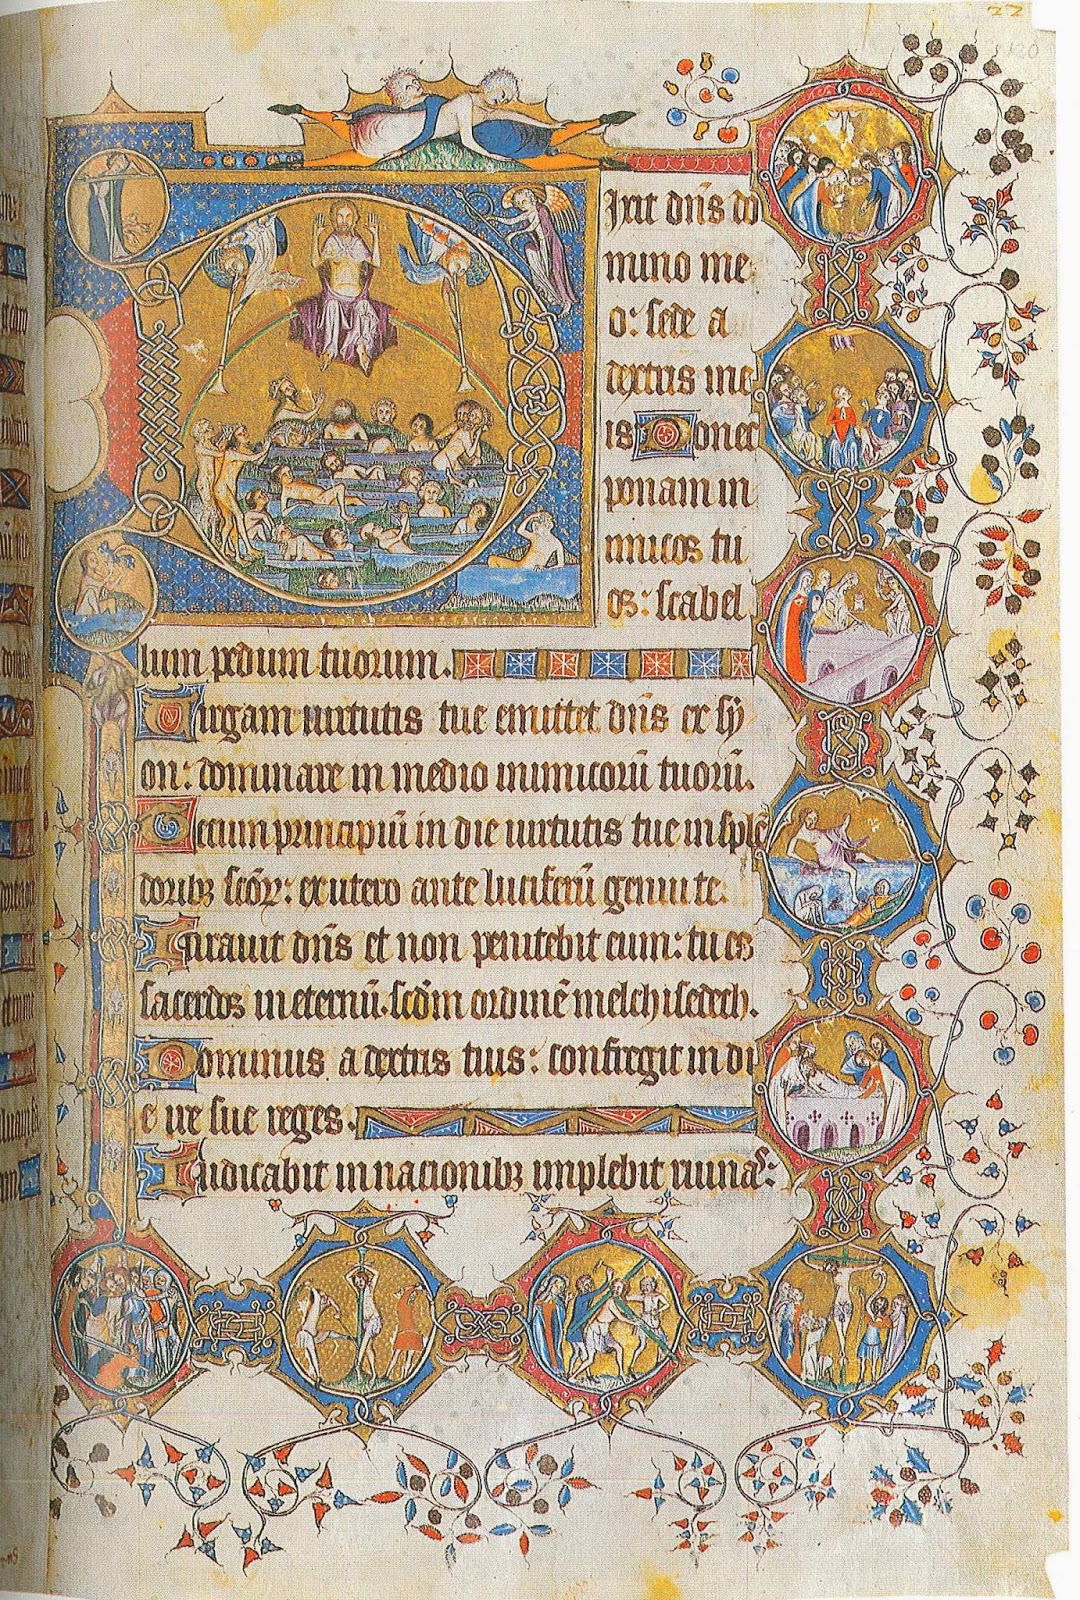 Ixit dñs do
mino me
o: sede a
dextris me
is Donec
ponam in
imicos tu
os: scabel
lum pedum tuorum.
Uirgam uirtutis tue emittet dñs ex sy
on: dominare in medio inimicorũ tuorũ.
Tecum principiũ in die uirtutis tue in splẽ
doribꝫ scõꝝ: ex utero ante luciferũ genui te.
Iurauit dñs et non penitebit eum: tu es
sacerdos in eternũ. scdm̃ ordinẽ melchisedech.
Dominus a dextris tuis: confregit in di
e ire sue reges.
Iudicabit in nacionibꝫ implebit ruinas: